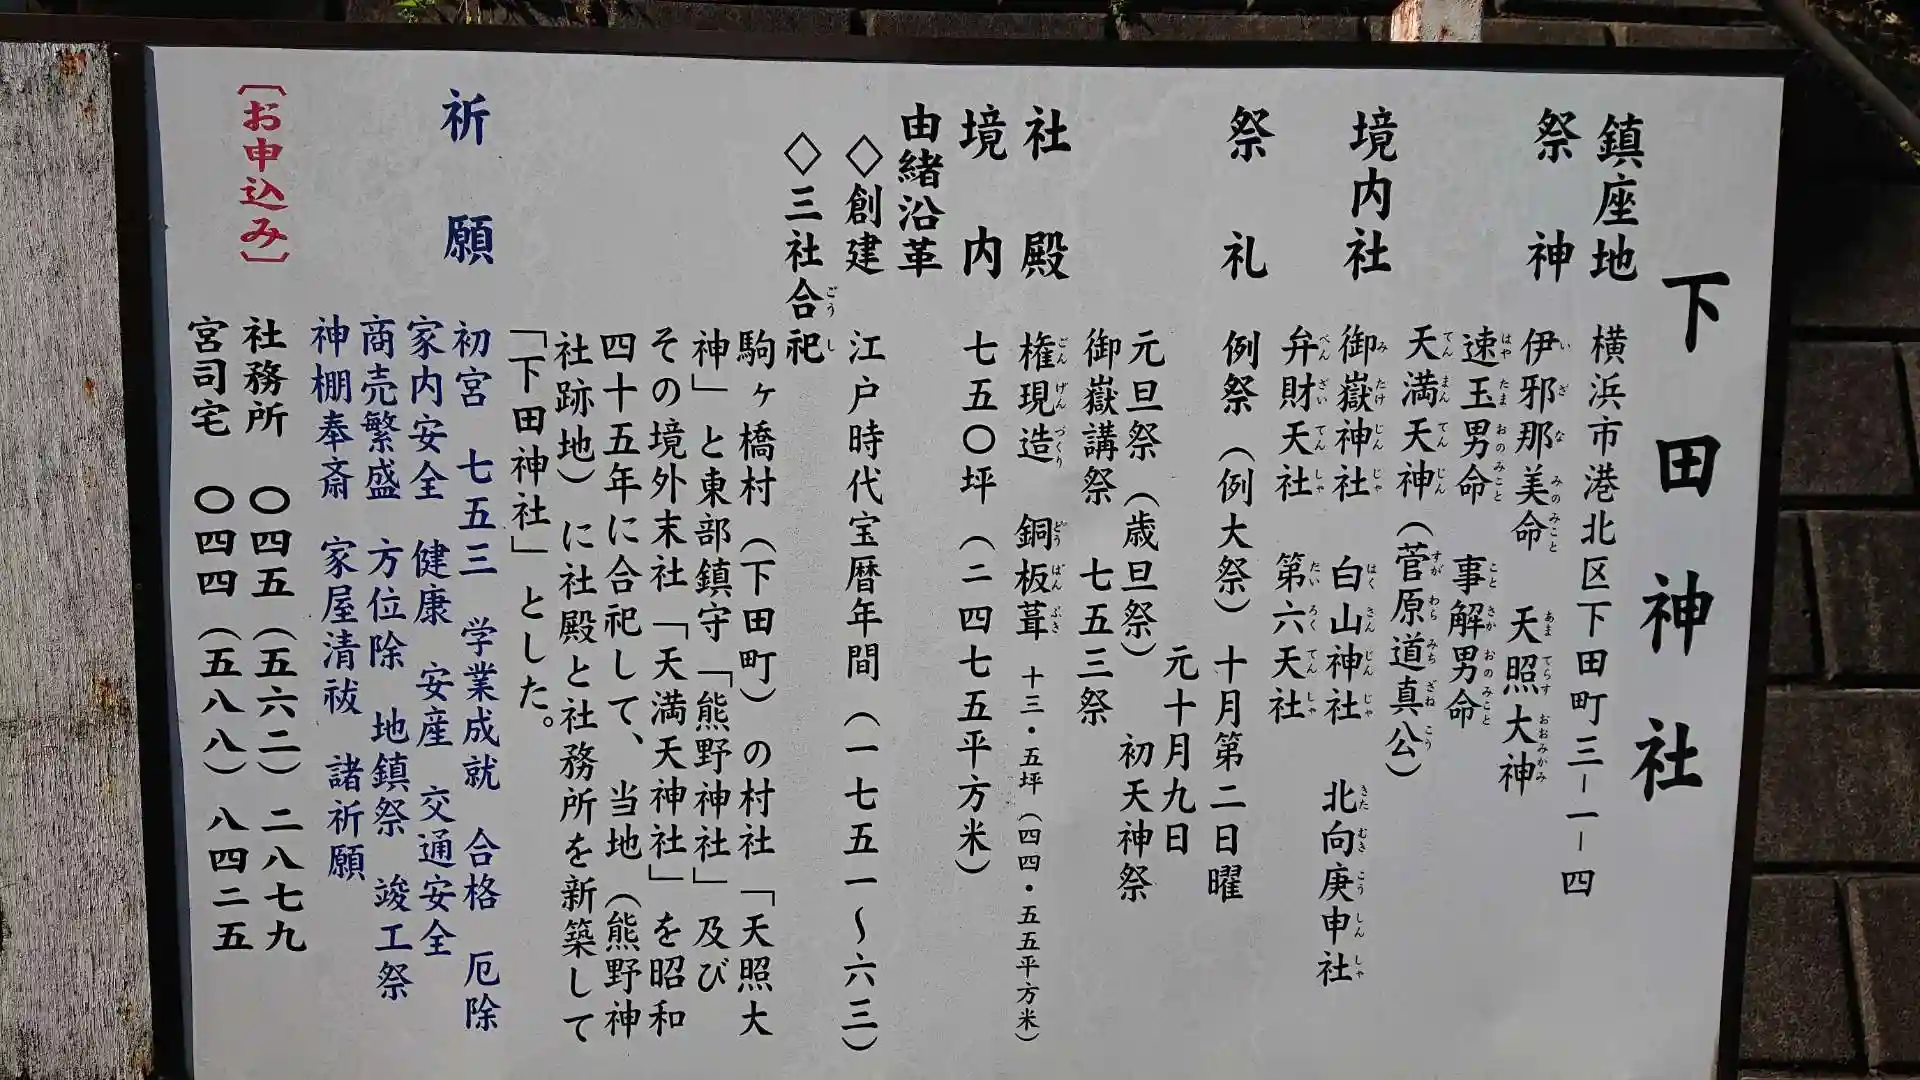 下田神社
鎮座地 横浜市港北区下田町三−一−四
祭神 伊邪那美命 天照大神
速玉男命 事解男命
天満天神（菅原道真公）
境内社 御嶽神社 白山神社 北向庚申社
弁財天社 第六天社
祭礼 例祭（例大祭）十月第二日曜
元十月九日
元旦祭（歳旦祭） 初天神祭
御嶽講祭 七五三祭
社殿 権現造 銅板葺 十三・五坪（四四・五五平方米）
境内 七五〇坪（二四七五平方米）
由緒沿革
◇創建 江戸時代宝暦年間（一七五一〜六三）
◇三社合祀
駒ヶ橋村（下田町）の村社「天照大
神」と東部鎮守「熊野神社」及び
その境外末社「天満天神社」を昭和
四十五年に合祀して、当地（熊野神
社跡地）に社殿と社務所を新築して
「下田神社」とした。
祈願 初宮 七五三 学業成就 合格 厄除
家内安全 健康 安産 交通安全
商売繁盛 方位除 地鎮祭 竣工祭
神棚奉斎 家屋清祓 諸祈願
〔お申込み〕 社務所 〇四五（五六二）二八七九
宮司宅 〇四四（五八八）八四二五